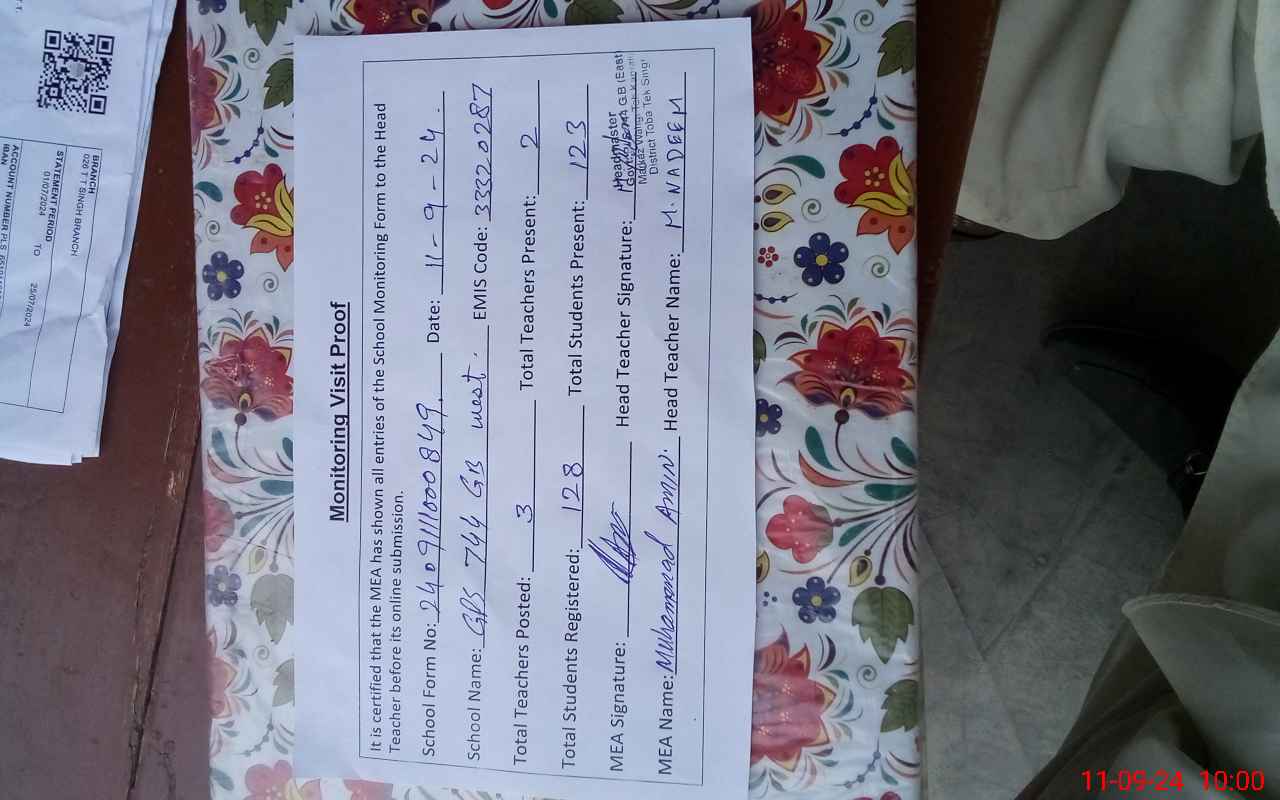 Monitoring Visit Proof
It is certified that the MEA has shown all entries of the School Monitoring Form to the Head
Teacher before its online submission.
School Form No: 2409111000849. Date: 11-9-24.
School Name: GPS 744 GB west. EMIS Code: 33320287
Total Teachers Posted: 3 Total Teachers Present: 2
Total Students Registered: 128 Total Students Present: 123
MEA Signature: Head Teacher Signature:
Headmaster
G.B (East
District Toba Tek Singh
MEA Name: Muhammad Amin. Head Teacher Name: M. NADEEM
BRANCH
026 T T SINGH BRANCH
STATEMENT PERIOD
01/07/2024 TO 25/07/2024
ACCOUNT NUMBER PLS
IBAN
11-09-24 10:00